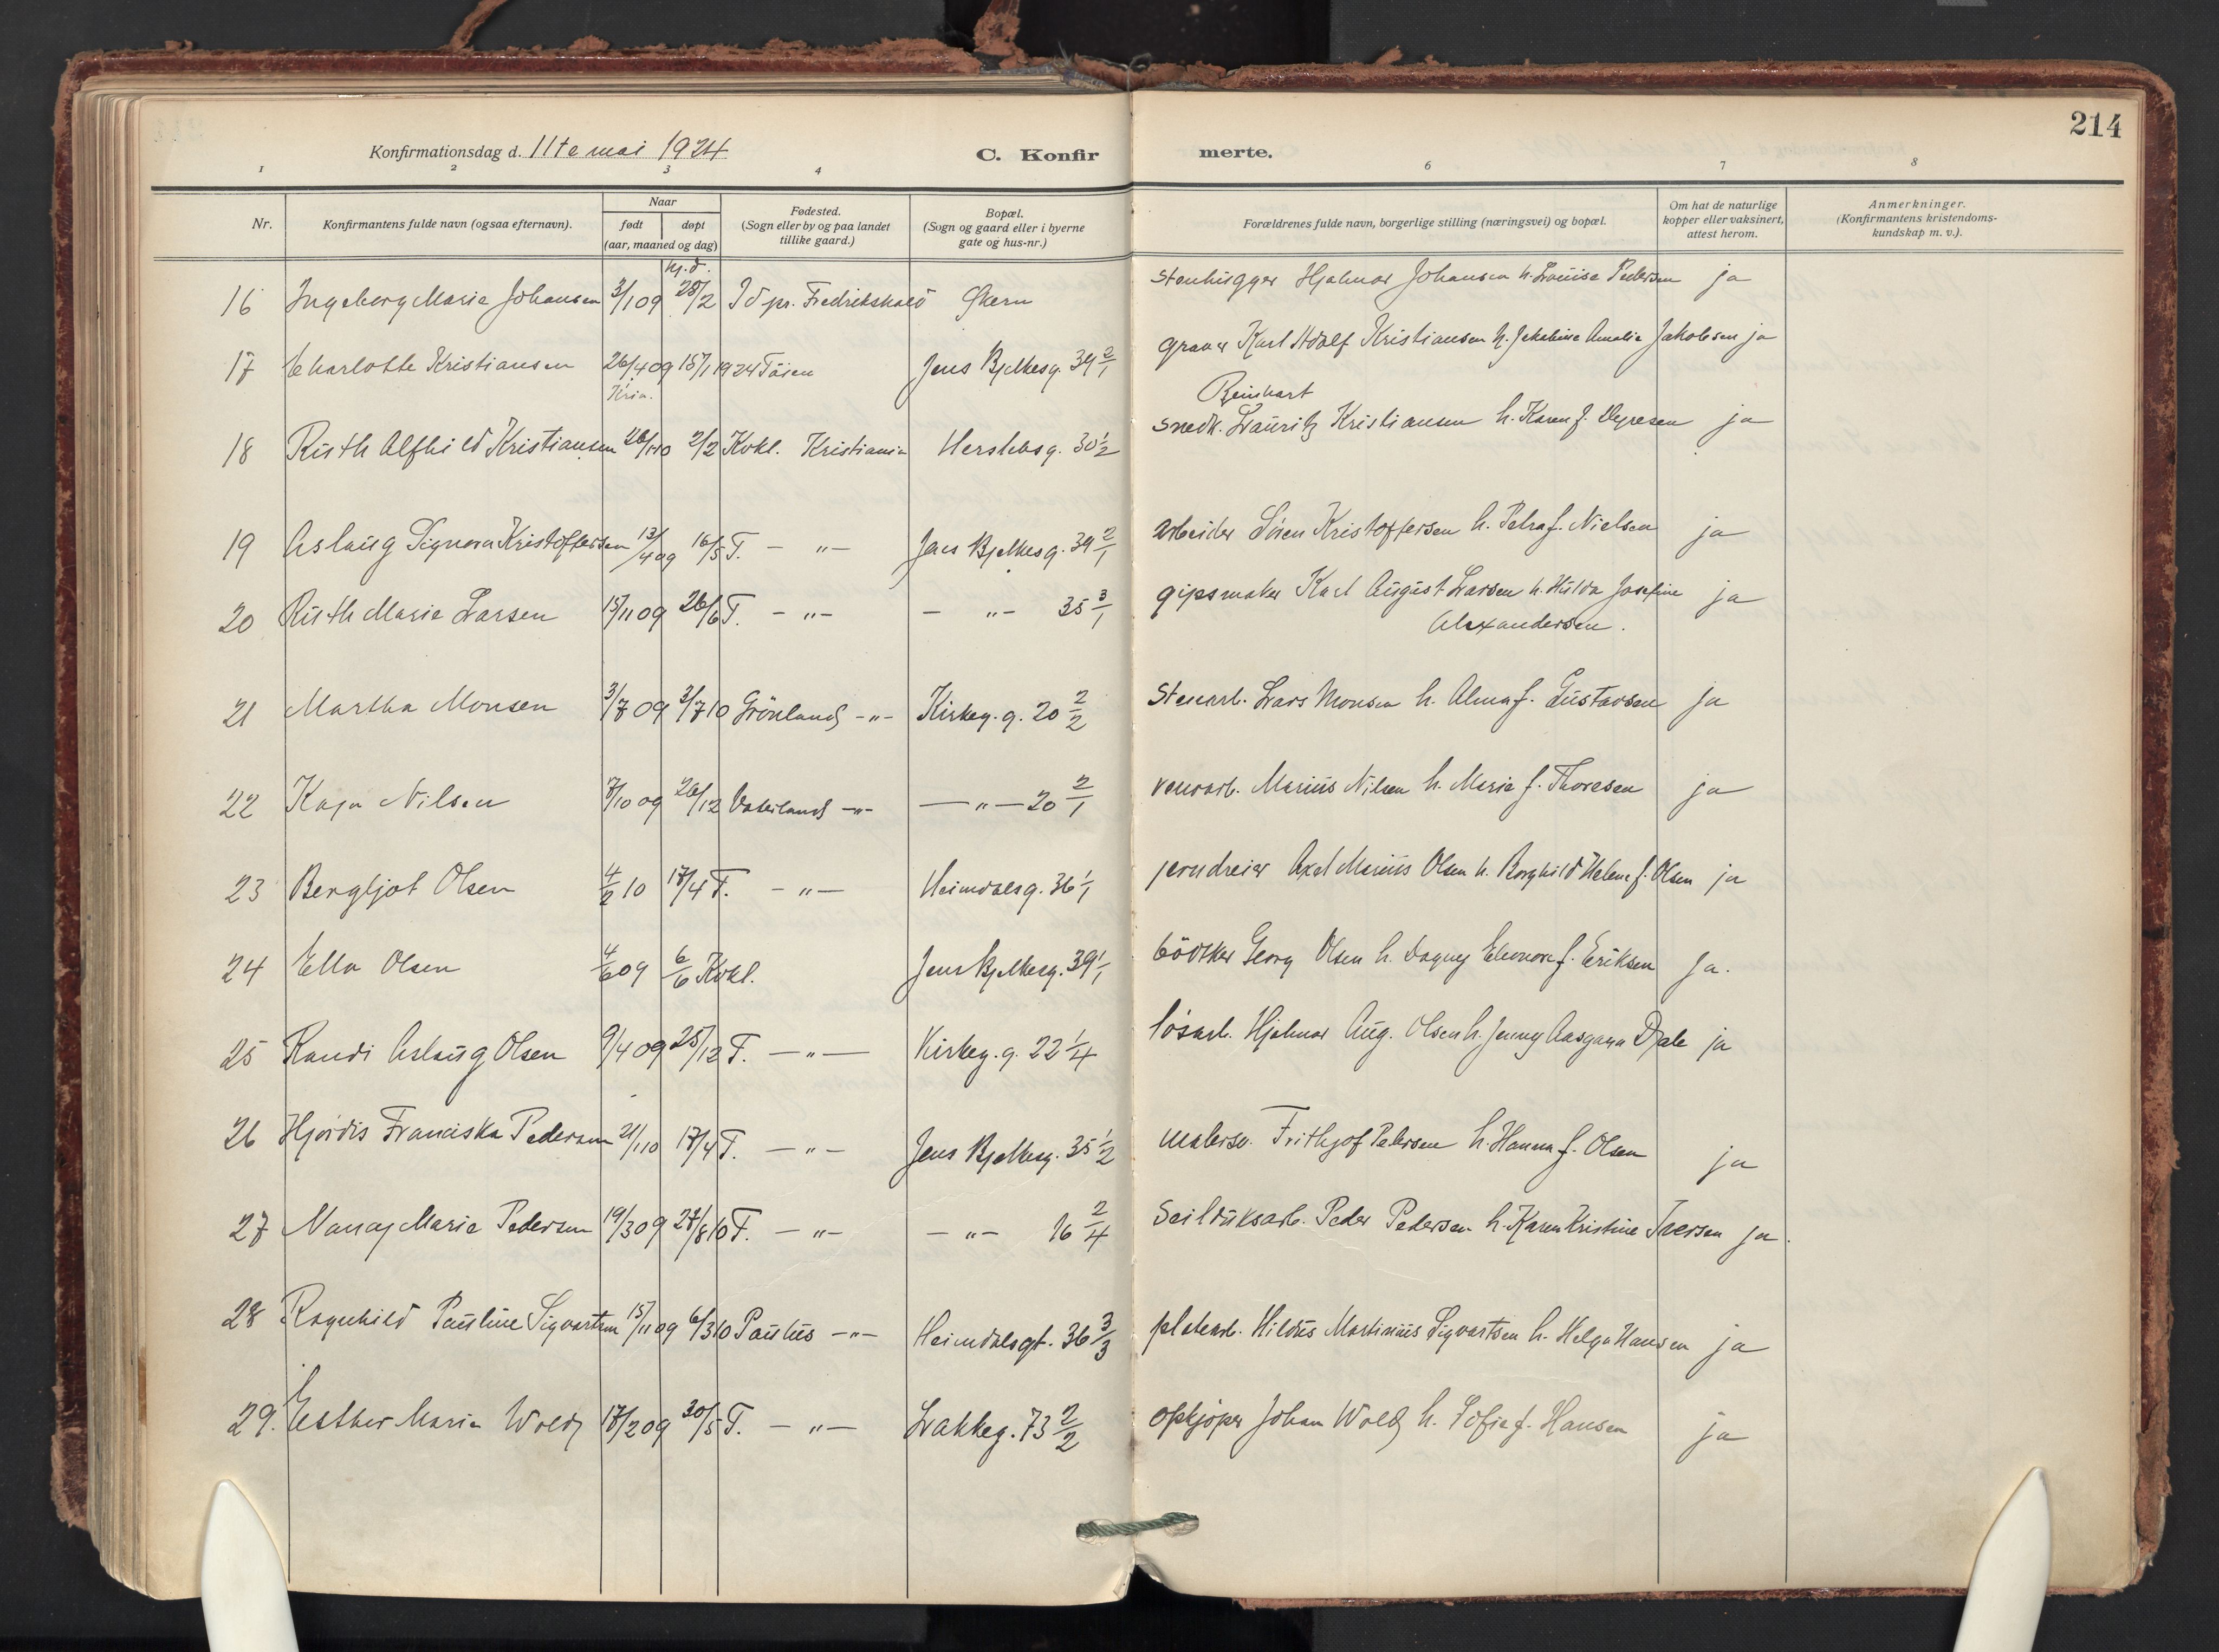 214
Konfirmationsdag d. 11te mai 1924 C. Konfir merte.
1 2 3 4 6 7 8
Nr. Konfirmantens fulde navn (ogsaa efternavn). Naar født døpt (aar, maaned og dag) Fødested. (Sogn eller by og paa landet tillike gaard.) Bopæl. (Sogn og gaard eller i byerne gate og hus-nr.) Forældrenes fulde navn, borgerlige stilling (næringsvei) og bopæl. Om hat de naturlige kopper eller vaksinert, attest herom. Anmerkninger. (Konfirmantens kristendoms-kundskap m. v.).
16 Ingeborg Marie Johansen 3/1 09 hj.d. 28/2 Id pr. Fredrikshald Økern Stenhugger Hjalmar Johansen h. Louise Pedersen ja
17 Charlotte Kristiansen 26/4 09 Kria. 15/1 1924 Töien Jens Bjelkesg. 39 2/1 graver Karl Adolf Kristiansen h. Jakobine Amalie Jakobsen ja
18 Ruth Alfhild Kristiansen 2/2 Kvkl. Kristiania Herslebsg. 30 1/2 Reinhart snedk. Lauritz Kristiansen h. Karen f. Dyresen ja
19 Aslaug Signora Kristoffersen 13/4 09 16/5 T. - " - Jens Bjelkesg. 39 2/1 arbeider Sören Kristoffersen h. Petra f. Nielsen ja
20 Ruth Marie Larsen 15/11 09 26/6 T. - " - - " - 35 3/1 gipsmaker Karl August Larsen h. Hulda Josefine ja
Alexandersen.
21 Martha Monsen 3/7 09 3/7 10 Grönland - " - Kirkeg. g. 20 2/2 Stenarb. Lars Monsen h. Alma f. Gustavsen ja
22 Kaja Nilsen 7/10 09 26/12 Vaterland - " - - " - 20 2/1 Marius Nilsen h. Marie f. Thoresen ja
23 Bergljot Olsen 4/2 10 17/4 T. - " - Heimdalsg. 36 1/1 jerndreier Axel Marius Olsen h. Borghild Helene f. Olsen ja
24 Ella Olsen 4/6 09 6/6 Kvkl. Jens Bjelkesg. 39 1/1 bödtker Georg Olsen h. Dagny Eleonore f. Eriksen ja.
25 Randi Aslaug Olsen 9/4 09 25/12 T. - " - Kirkeg. g. 22 1/4 lösarb. Hjalmar Aug. Olsen h. Jenny Aasgara Dale ja
26 Hjördis Franciska Pedersen 21/1 10 17/4 T. - " - Jens Bjelkesg. 35 1/2 malersv. Frithjof Pedersen h. Hanna f. Olsen ja
27 Nancy Marie Pedersen 19/3 09 27/8 10 T. - " - - " - 16 2/4 Seilduksarb. Peder Pedersen h. Karen Kristine Iversen ja.
28 Ragnhild Pauline Sigvartsen 15/11 09 6/3 10 Paulus - " - Heimdalsgt. 36 3/3 platearb. Hildus Martinius Sigvartsen h. Helga Hansen ja
29. Esther Marie Wold 17/2 09 30/5 T. - " - Lakkeg. 73 2/2 opkjöper Johan Wold h. Sofie f. Hansen ja